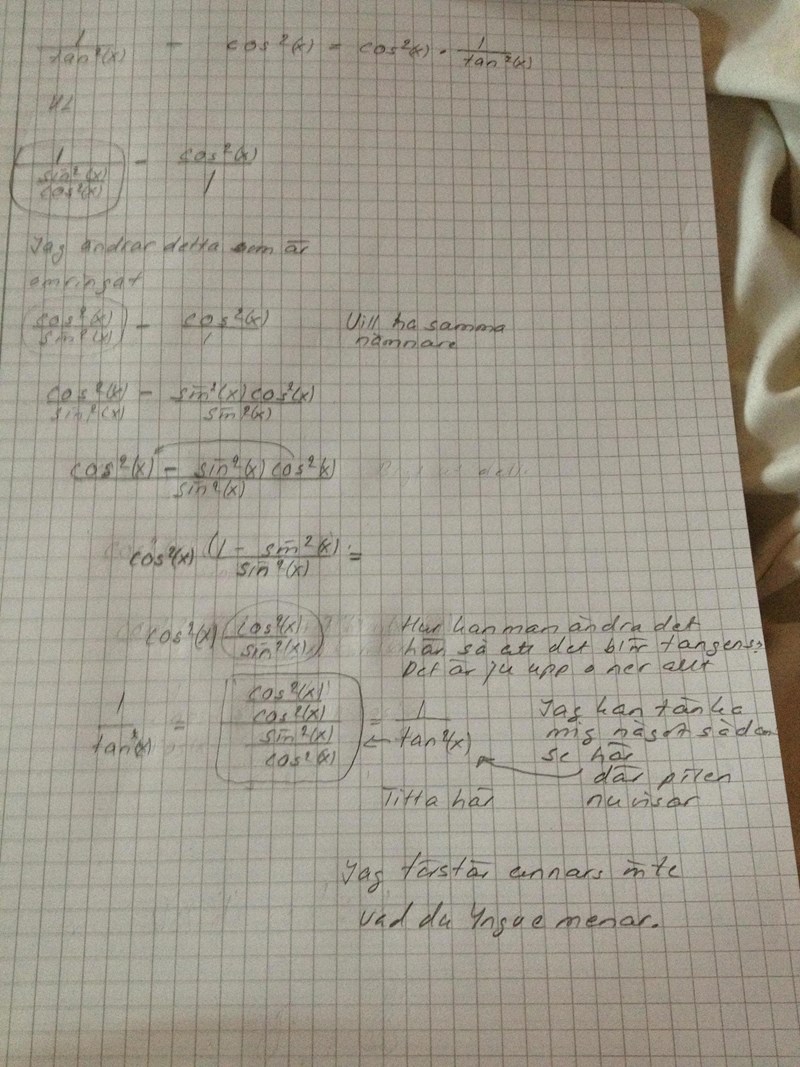 1/tan²(x) - cos²(x) = cos²(x) · 1/tan²(x)
VL
1/(sin²(x)/cos²(x)) - cos²(x)/1
Jag ändrar detta som är
omringat
cos²(x)/sin²(x) - cos²(x)/1 Vill ha samma
nämnare
cos²(x)/sin²(x) - sin²(x)cos²(x)/sin²(x)
cos²(x) - sin²(x)cos²(x)/sin²(x)
cos²(x) (1 - sin²(x)/sin²(x) =
cos²(x) (cos²(x)/sin²(x)) Hur kan man ändra det
här så att det blir tangens?
Det är ju upp o ner allt
1/tan²(x) = (cos²(x)/cos²(x))/(sin²(x)/cos²(x)) = 1/tan²(x) Jag kan tänka
mig något sådan
se här
där pilen
Titta här nu visar
Jag förstår annars inte
vad du Yngve menar.